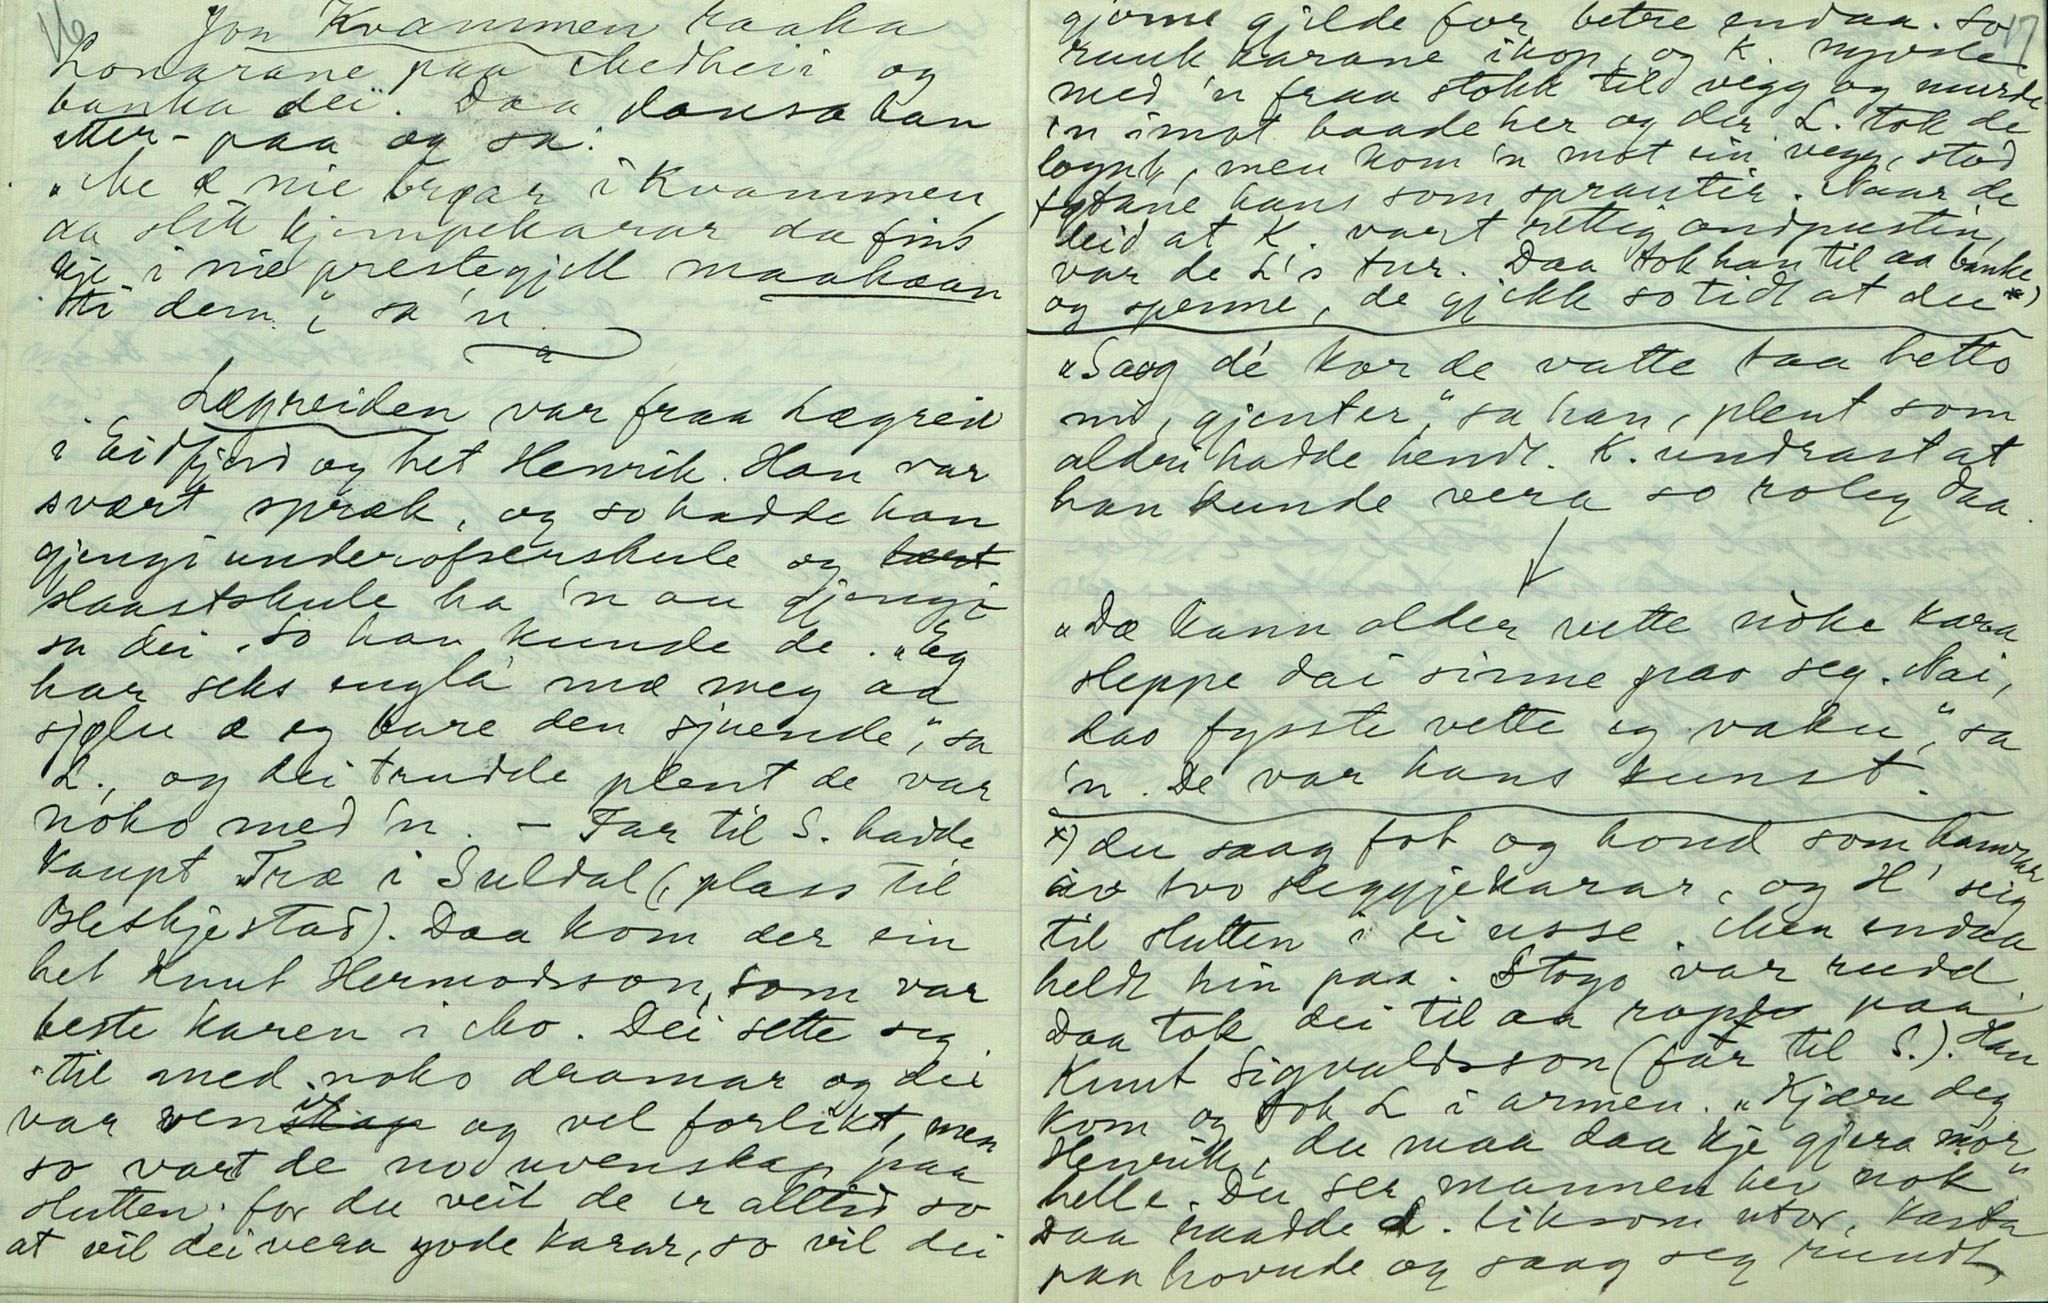 16
Jon Kvammen raaka
Lonarane paa Medheii og
banka dei. Daa dansa han
etter-paa og sa:
„Me æ nie brøar i Kvammen,
aa slik kjempekarar da fins
kje i nie prestegjell maakaan
ti dem", sa 'n.
Lægreiden var fraa Lægreid
i Eidfjord og het Henrik. Han var
svært spræk, og so hadde han
gjengi underofserskule og lært
slaastskule ha 'n au gjengi
sa dei. So han kunde de. „Eg
har seks englá mæ meg aa
sjølu æ eg bare den sjuende", sa
L., og dei trudde plent de var
noko med 'n. – Far til S. hadde
kaupt Træ i Suldal (plass til
Heskjestad). Daa kom der ein
het Knut Hermodsson, som var
beste karen i Mo. Dei sette seg
til med noko drammar og dei
var venskap og vel forlikt, men
so vart de no uvenskap paa
slutten; for du veit de er alltid so
at vil dei vera gode karar, so vil dei
17
gjerne gjelde for betre endaa. So
rauk karane ihop, og K. nyvde
med 'n fraa stokk til vegg og murde
'n imot baade her og der. L. tok de
lognt, men kom 'n mot ein vegg, stod
føtane hans som sprautir. Naar de
leid at K. vart rettig andpustin,
var de L's tur. Daa tok han til aa banke
og spenne, de gjekk so tidt at du *)
„Saag dé kor de vatte taa hetto
mi, gjenter," sa han, plent som
aldri hadde hendt. K. undrast at
han kunde vera so roleg daa.
„Dæ kann alder vette nòke kara
sleppe dai sinne pao seg. Nai,
dao fysste vette eg vaken", sa
'n. De var hans kunst.
*) du saag fot og hond som hamrar
av tvo sleggjekarar, og H' seig
til slutten i ei usse. Men endaa
heldt hin paa. Stogo var rudd.
Daa tok dei til aa ropte paa
Knut Sigvaldsson (far til S.). Han
kom og tok L i armen. „Kjære deg
Henrik, du maa daa kje gjera mor
helle. Du ser mannen her nok"
Daa raadde L. liksom utor, kasta
paa hovude og saag seg rundt,